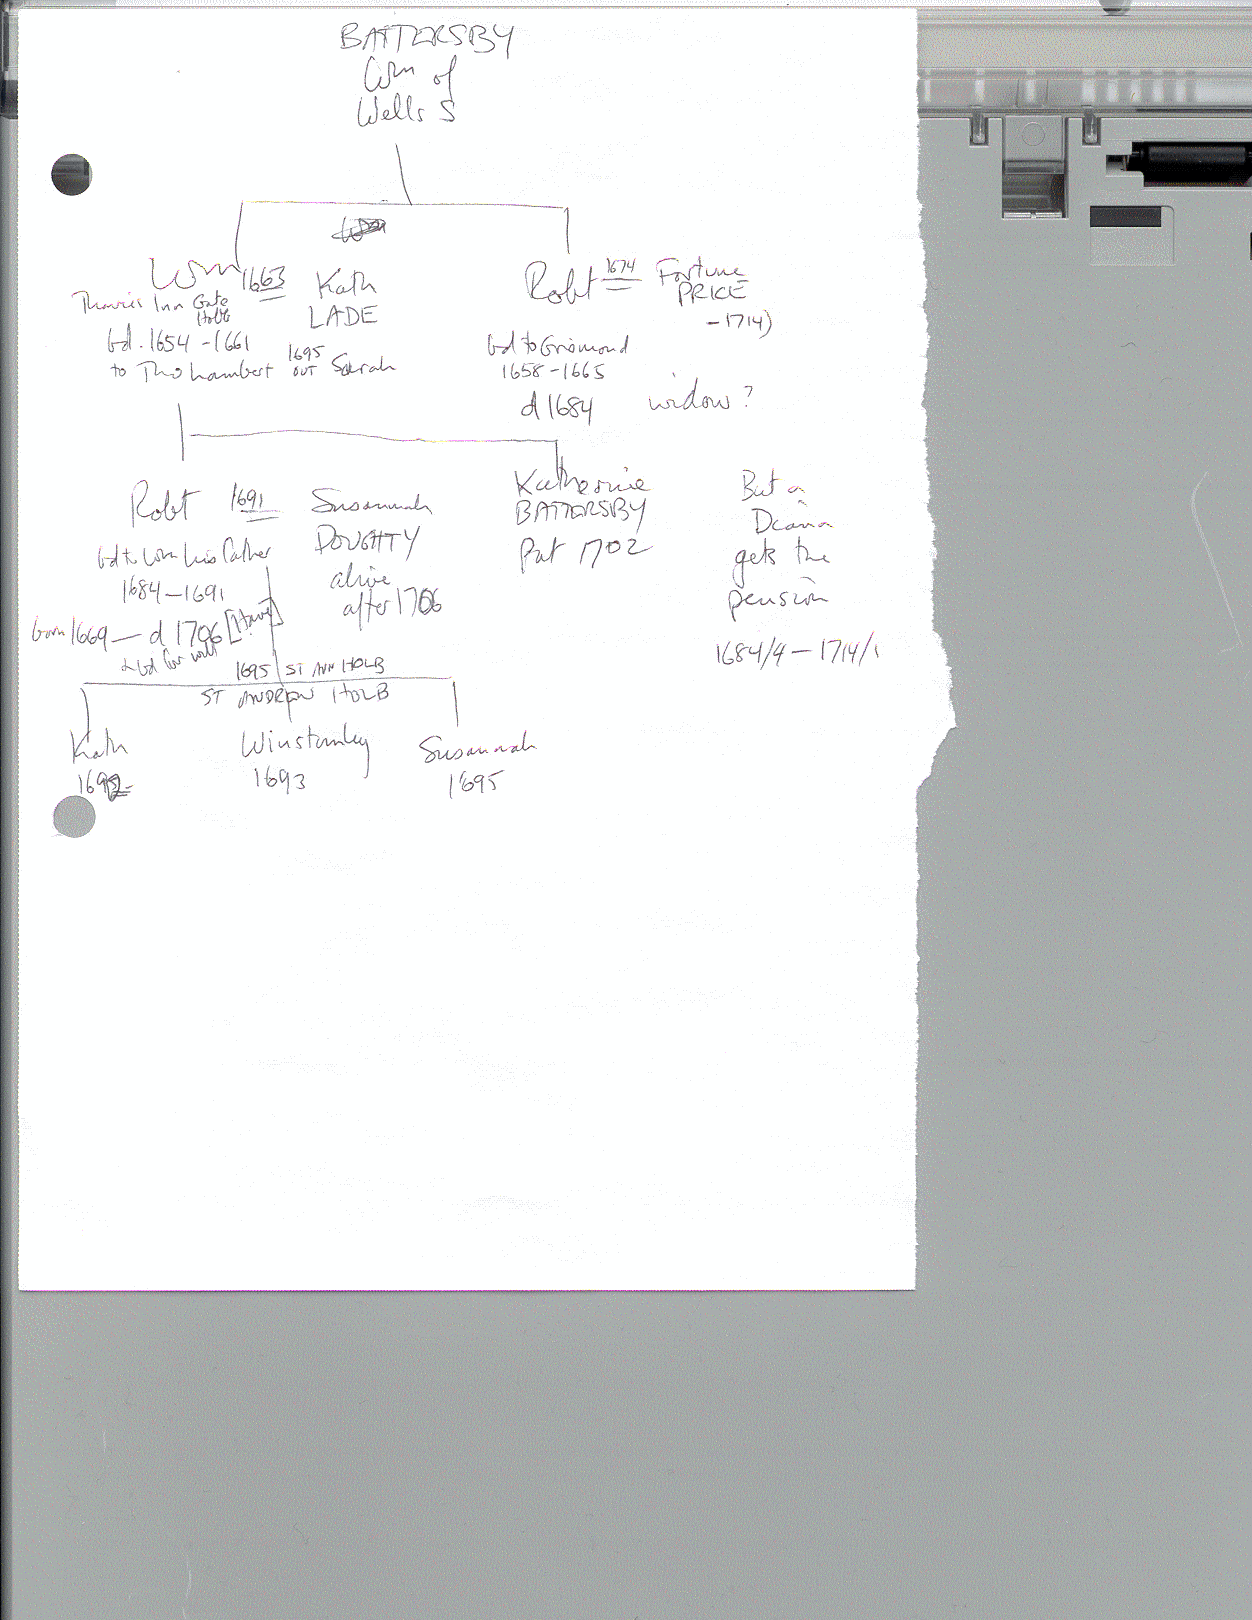 BATTERSBY
Wm of
Wells S
Wm 1663 Kath
LADE
Thavies Inn Gate
Holb
bd. 1654 - 1661
to Tho Lambert
1695
OUT Sarah
Robt 1674 Fortune
PRICE
- 1714)
bd to Grismond
1658 - 1665
d 1684 widow?
Robt 1691 Susannah
DOUGHTY
alive
after 1706
bd to Wm his father
1684 - 1691
born 1669 - d 1706 [Have]
& bd for will
Katherine
BATTERSBY
Pat 1702
But a
Diana
gets the
pension
1684/4 - 1714/1
1695 ST ANN HOLB
ST ANDREW HOLB
Kath
1692
Winstanley
1693
Susannah
1695